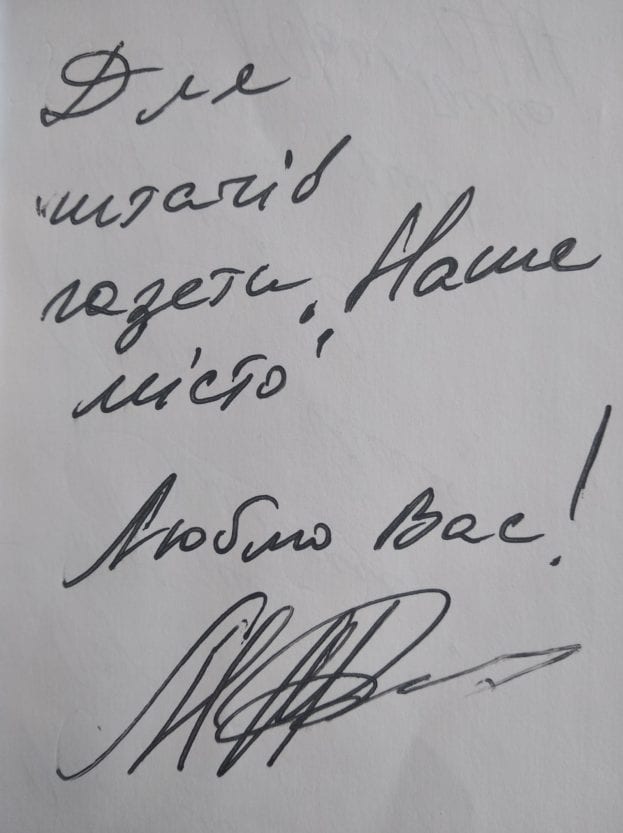 Для
читачів
газети „Наше
місто"
Люблю Вас!